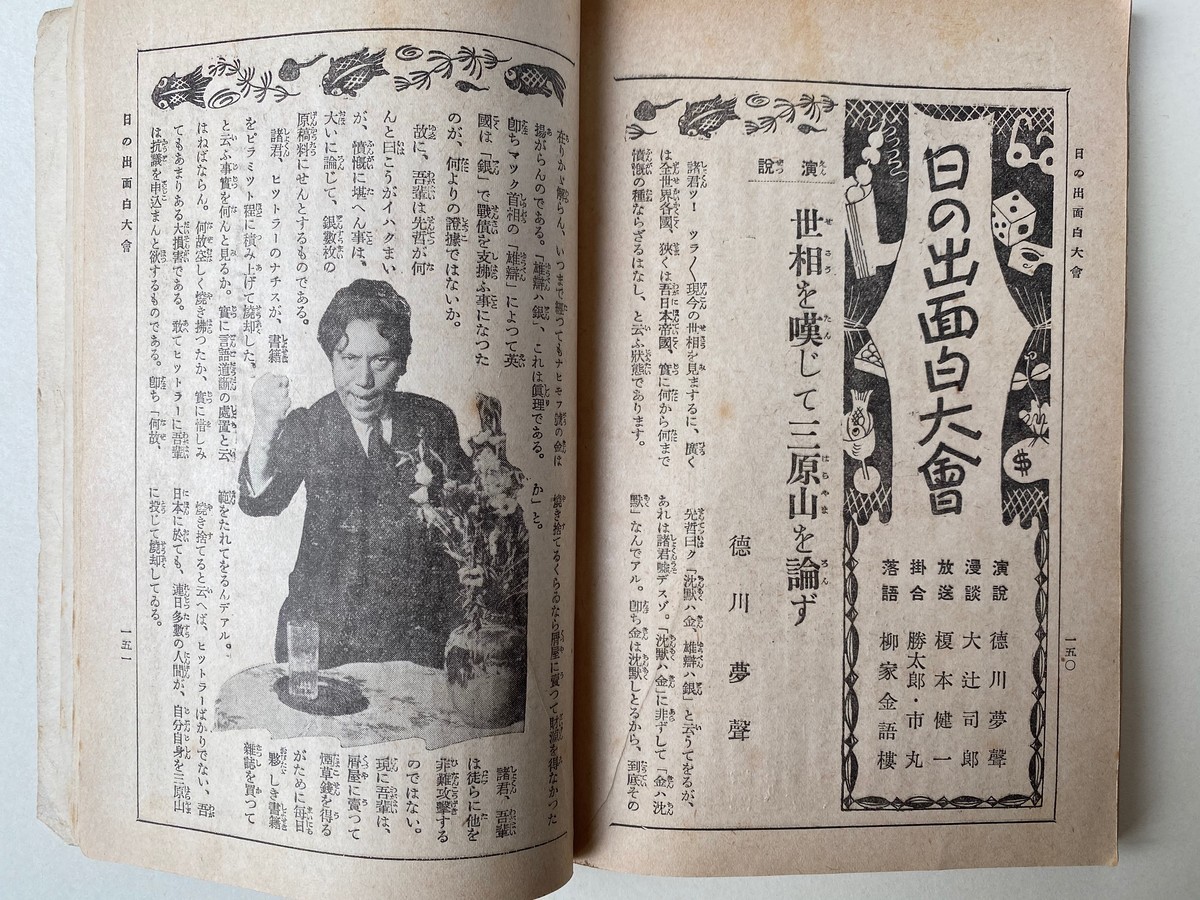 日の出面白大會
一五〇
日の出面白大會
演說 德川夢聲
漫談 大辻司郎
放送 榎本健一
掛合 勝太郎・市丸
落語 柳家金語樓
演說
世相を嘆じて三原山を論ず
德川夢聲
諸君ッ！ ツラ〳〵現今の世相を見まするに、廣く
は全世界各國、狹くは吾日本帝國、實に何から何まで
憤慨の種ならざるはなし、と云ふ狀態であります。
先哲曰ク「沈默ハ金、雄辯ハ銀」と云うてをるが、
あれは諸君嘘デスゾ。「沈默ハ金」に非ずして「金ハ沈
默」なんでアル。卽ち金は沈默しとるから、到底その
在りかゞ解らん、いつまで經つてもナヒモフ號の金は
揚がらんのである。「雄辯ハ銀」、これは眞理である。
卽ちマック首相の「雄辯」によつて英
國は「銀」で戰債を支拂ふ事になつた
のが、何よりの證據ではないか。
故に、吾輩は先哲が何
んと曰こうがイハクまい
が、憤慨に堪へん事は、
大いに論じて、銀數枚の
原稿料にせんとするものである。
諸君、ヒットラーのナチスが、書籍
をピラミット程に積み上げて燒却した。
と云ふ事實を何んと見るか。實に言語道斷の處置と云
はねばならん。何故空しく燒き拂つたか、實に惜しみ
てもあまりある大損害である。敢てヒットラーに吾輩
は抗議を申込まんと欲するものである。卽ち「何故、
燒き捨てるくらゐなら屑屋に賣つて財源を得なかつた
か」と。
諸君、吾輩
は徒らに他を
非難攻擊する
のではない。
現に吾輩は、
屑屋に賣つて
煙草錢を得る
がために每日
夥しき書籍
雜誌を買つて
範をたれてをるんデアル。
燒き捨てると云へば、ヒットラーばかりでない、吾
日本に於ても、連日多數の人間が、自分自身を三原山
に投じて燒却してゐる。
日の出面白大會
一五一